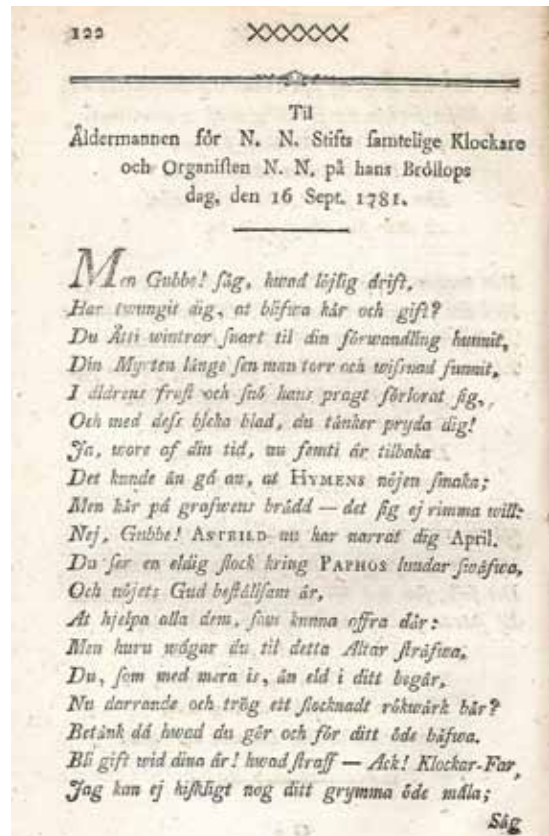 122
Til
Åldermannen för N. N. Stifts samtelige Klockare
och Organisten N. N. på hans Bröllops
dag, den 16 Sept. 1781.
Men Gubbe! säg, hwad löjlig drift,
Har twungit dig, at bäfwa kär och gift?
Du Åtti wintrar snart til din förwandling hunnit,
Din Myrten länge sen man torr och wissnad funnit,
I åldrens frost och snö hans pragt förlorat sig,
Och med dess bleka blad, du tänker pryda dig!
Ja, wore af din tid, nu femti år tilbaka
Det kunde än gå an, at HYMENS nöjen smaka;
Men kär på grafwens brädd — det sig ej rimma will:
Nej, Gubbe! ASTRILD nu har narrat dig April.
Du ser en eldig flock kring PAPHOS lundar swäfwa,
Och nöjets Gud beställsam är,
At hjelpa alla dem, som kunna offra där:
Men huru wågar du til detta Altar sträfwa,
Du, som med mera is, än eld i ditt begär,
Nu darrande och trög ett slocknadt rökwärk bär?
Betänk då hwad du gör och för ditt öde bäfwa.
Bli gift wid dina år! hwad straff — Ack! Klockar-Far,
Jag kan ej hiskligt nog ditt grymma öde måla;
Säg